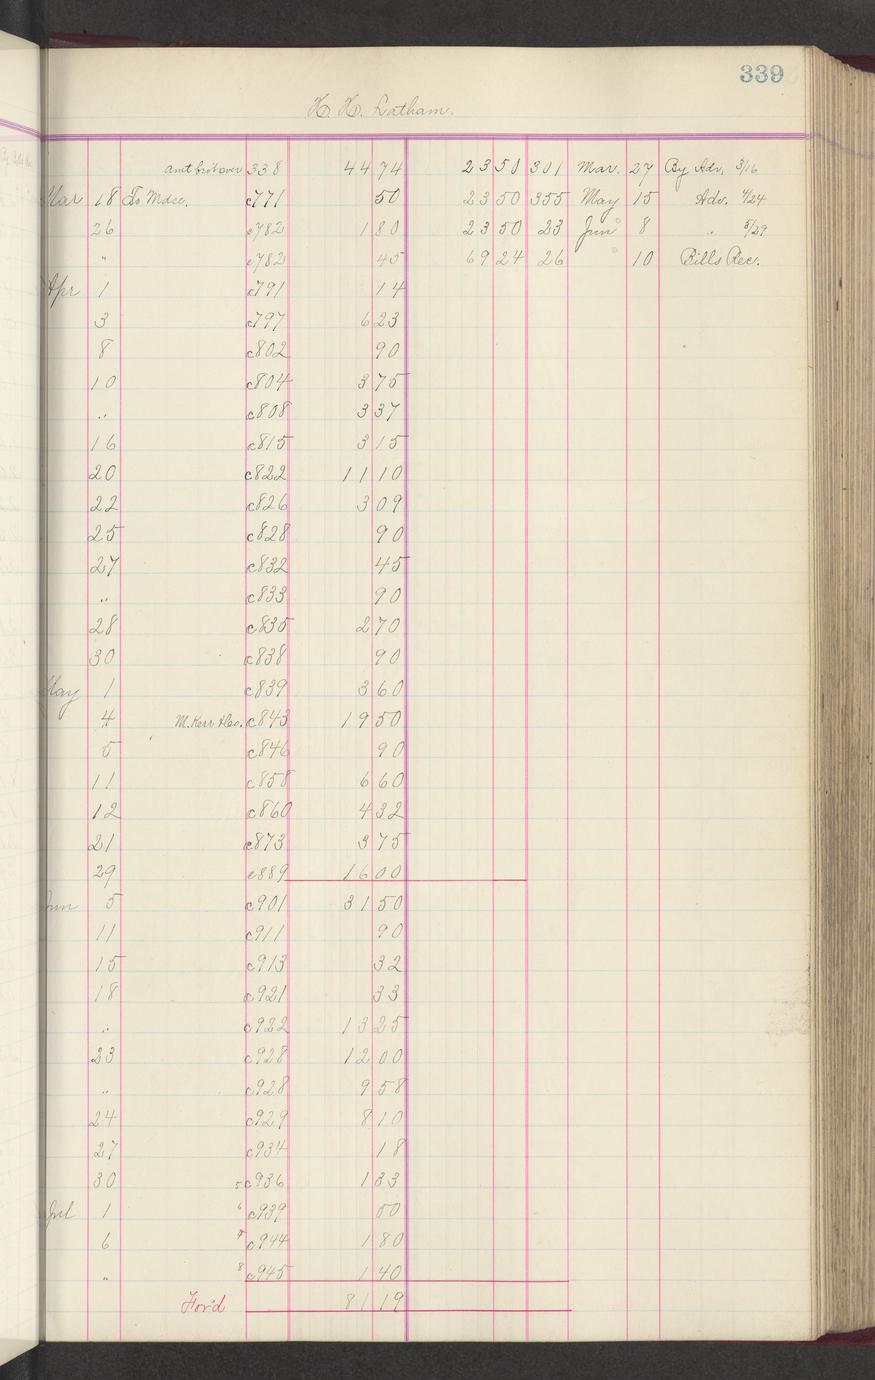 339
H. H. Latham.
amt brt over 338 44 74 23 50 301 Mar. 27 By Adv. 3/16
Mar 18 To Mdse. c771 50 23 50 355 May 15 Adv. 4/24
26 c782 1 80 23 50 23 Jun 8 " 5/29
" c782 45 69 24 26 10 Bills Rec.
Apr 1 c791 14
3 c797 6 23
8 c802 90
10 c804 3 75
" c808 3 37
16 c815 3 15
20 c822 11 10
22 c826 3 09
25 c828 90
27 c832 45
" c833 90
28 c835 2 70
30 c838 90
May 1 c839 3 60
4 M. Kerr c843 19 50
5 c846 90
11 c858 6 60
12 c860 4 32
21 c873 3 75
29 c889 16 00
Jun 5 c901 31 50
11 c911 90
15 c913 32
18 c921 33
" c922 13 25
23 c928 12 00
" c928 9 58
24 c929 8 10
27 c934 18
30 5 c936 1 33
Jul 1 6 c939 50
6 7 c944 1 80
" 8 c945 1 40
For'd 81 19